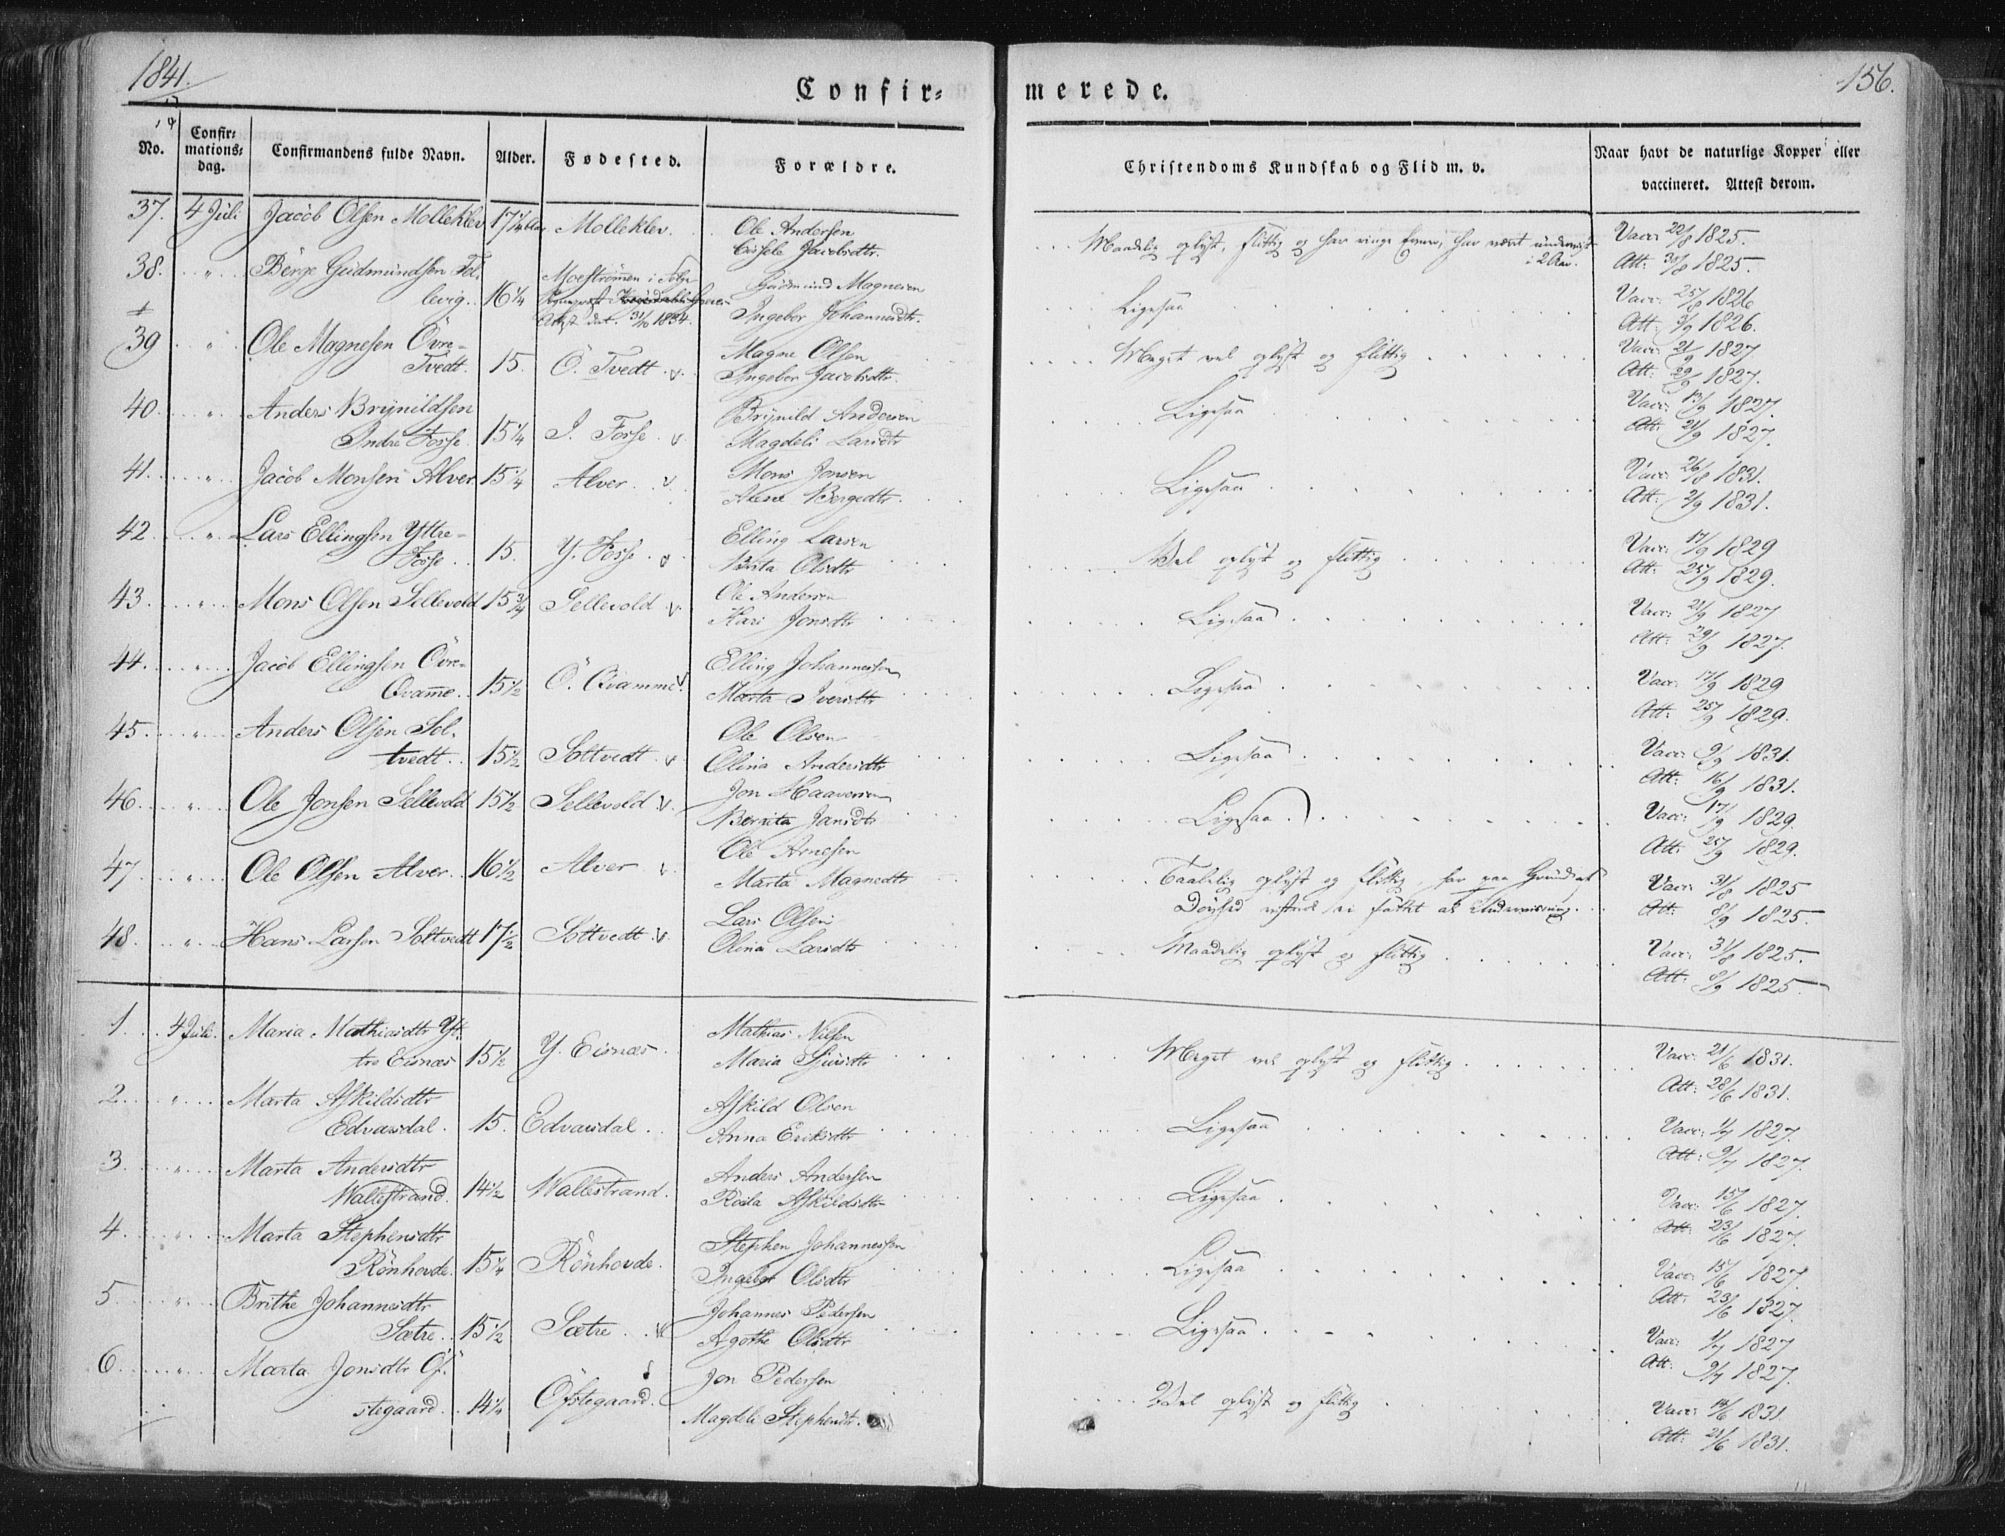 1841.
Confir=
merede.
156.
No.
Confir=
mations=
dag.
Confirmandens fulde Navn.
Alder.
Fødested.
Forældre.
Christendoms Kundskab og Flid m. v.
Naar havt de naturlige Kopper eller
vaccineret. Attest derom.
37. 4 Juli Jacob Olsen Molleklev 17¼ Molleklev. Ole Andersen
Jacobsdtr.
Maadelig oplyst, flittig og har ringe Evner, har været
i 2 Aar.
Vacc: 1825.
Att: 1825.
38. " Börge Gudmundsen
levig. 16¼ Moeströmen i
Attest dat. 31/10 1834.
Gudmund Magnesen
Ingebor Johannesdtr.
Ligesaa
Vacc: 25/8 1826
Att: 3/9 1826.
39 " Ole Magnesen Övre-
Tvedt. 15. Ö. Tvedt v. Magne Olsen
Ingebor Jacobsdtr.
Meget vel oplyst og flittig
Vacc: 21/9 1827.
Att: 29/9 1827.
40. " Anders Brynildsen
Indre Fosse. 15¼ I. Fosse v Brynild Andersen
Magdeli Larsdtr
Ligesaa
Vacc: 13/9 1827.
Att: 21/9 1827.
41. " Jacob Monsen Alver 15¼ Alver v Mons Jonsen
Bergedtr.
Ligesaa
Vacc: 26/8 1831.
Att: 2/9 1831.
42 " Lars Ellingsen Yttre-
Fosse. 15. Y. Fosse v Elling Larsen
Brita Olsdtr
Vel oplyst og flittig
Vacc: 17/9 1829
Att: 25/9 1829.
43. " Mons Olsen Sellevold 15¾ Sellevold v. Ole Andersen
Kari Jonsdtr
Ligesaa
Vacc: 21/9 1827
Att: 29/9 1827.
44. " Jacob Ellingsen Övre-
Qvamme. 15½ Ö. Qvamme v. Elling Johannessen
Marta Iversdtr
Ligesaa
Vacc: 17/9 1829
Att: 25/9 1829.
45. " Anders Olsen Sol-
tvedt. 15½ Soltvedt v Ole Olsen
Olina Andersdtr
Ligesaa
Vacc: 9/9 1831.
Att: 16/9 1831.
46. " Ole Jonsen Sellevold 15½ Sellevold v. Jon Haaversen
Bergita Jansdtr
Ligesaa
Vacc: 17/9 1829.
Att: 25/9 1829.
47 " Ole Olsen Alver. 16½ Alver v Ole Arnesen
Marta Magnedtr
Taalelig oplyst og flittig, har paa Grund af
Dövhed ei faaet al Underviisning.
Vacc: 31/8 1825
Att: 8/9 1825.
48. " Hans Larsen Soltvedt 17½ Soltvedt v. Lars Olsen
Olina Larsdtr
Maadelig oplyst og flittig
Vacc: 31/8 1825.
Att: 1825.
1. 4 Juli. Maria Mathiasdtr Yt-
tre Eisnæs 15½ Y. Eisnæs. Mathias Nilsen
Maria Sjursdtr
Meget vel oplyst og flittig
Vacc: 21/6 1831.
Att: 28/6 1831.
2. " Marta Askildsdtr
Edvarsdal. 15. Edvarsdal. Askild Olsen
Anna Eriksdtr
Ligesaa
Vacc: 1/7 1827.
Att: 9/7 1827.
3 " Marta Andersdtr
Wallestrand. 14½ Wallestrand. Anders Andersen
Askildsdtr
Ligesaa
Vacc: 15/6 1827.
Att: 23/6 1827.
4 " Marta Stephensdtr
Rönhovde. 15¼ Rönhovde. Stephen Johannessen
Ingebor Olsdtr
Ligesaa
Vacc: 15/6 1827.
Att: 23/6 1827.
5 " Brithe Johannesdtr
Sætre. 15½ Sætre. Johannes Pedersen
Agothe Olsdtr
Ligesaa
Vacc: 1/7 1827
Att: 9/7 1827.
6 " Marta Jonsdtr Öf-
stegaard. 14¼ Öfstegaard. Jon Pedersen
Magdeli Stephensdtr.
Vel oplyst og flittig
Vacc: 14/6 1831.
Att: 21/6 1831.